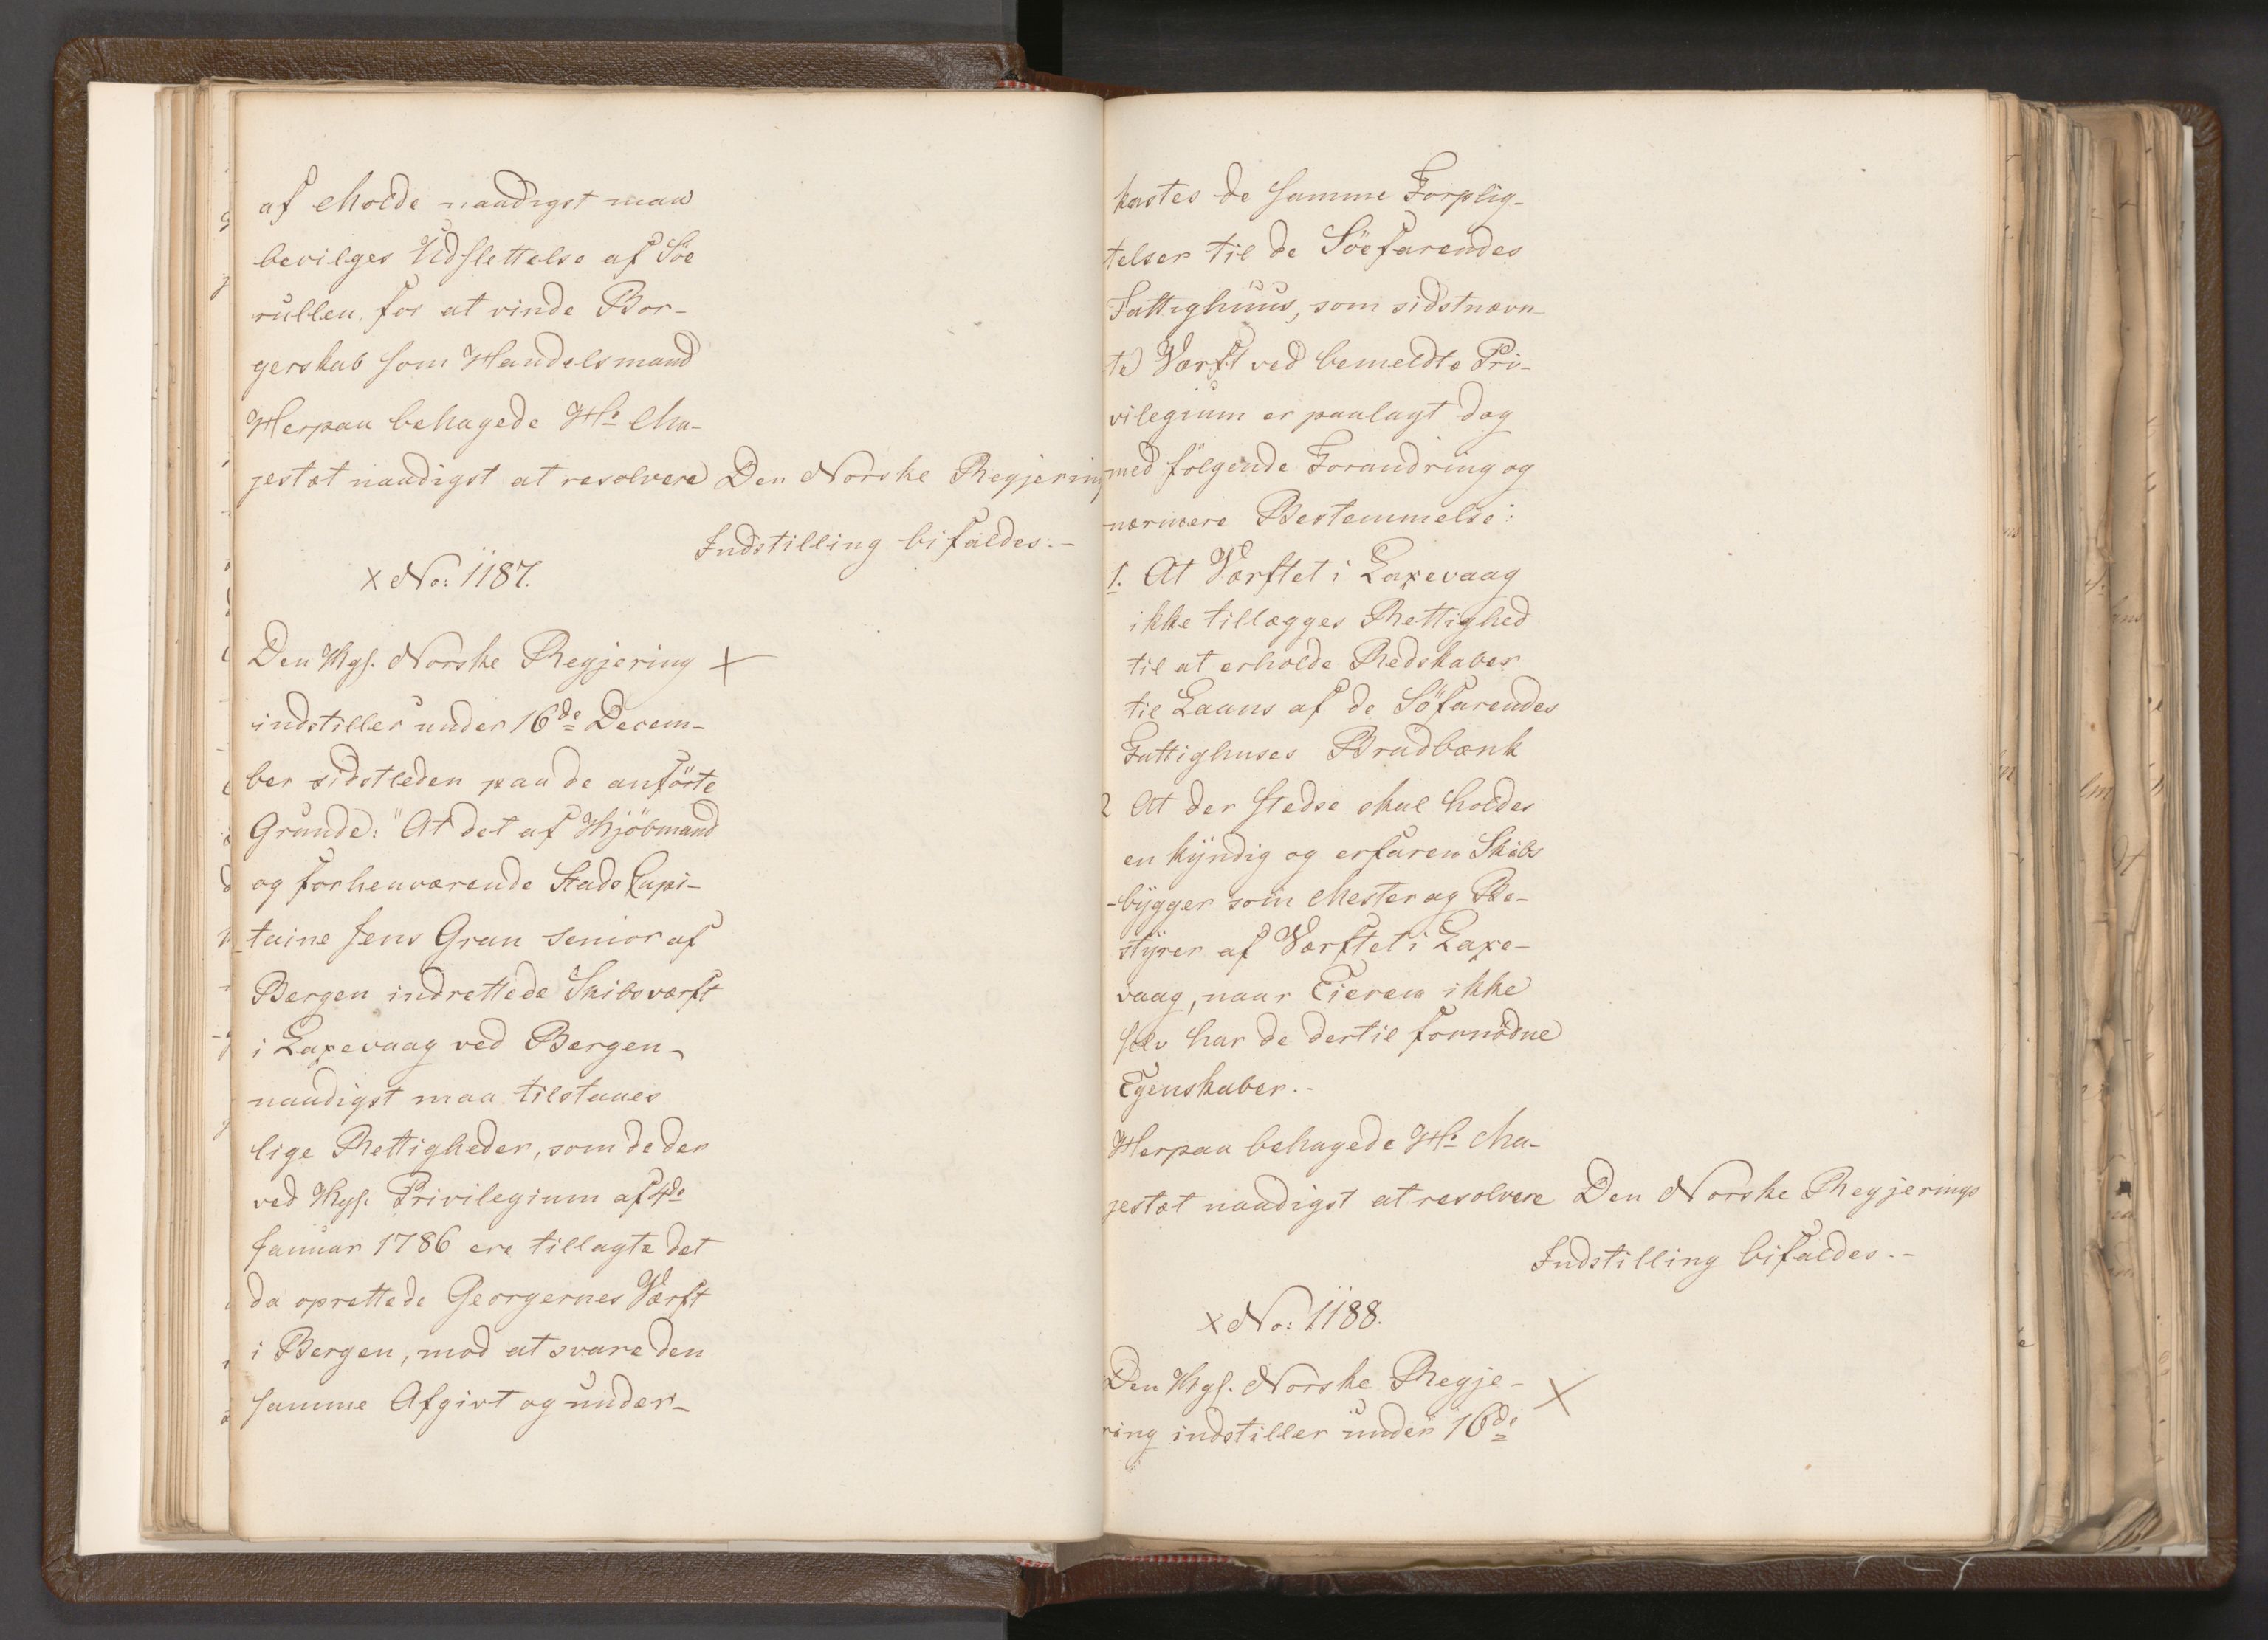 af Molde naadigst maa
bevilges Udslettelse af Söe
rullen, for at vinde Bor-
gerskab som Handelsmand
Herpaa behagede Hs. Ma-
jestæt naadigst at resolvere Den Norske Regjering
Indstilling bifaldes.-
x No: 1187.
Den Kgs. Norske Regjering x
indstiller under 16de Decem-
ber sidstleden paa de anförte
Grunde: "At det af Kjöbmand
og forhenværende Stads Capi-
taine Jens Gran Senior af
Bergen indrettede Skibsværft
i Laxevaag ved Bergen,
naadigst maa tilstaaes
lige Rettigheder, som de der
ved Kgs. Privilegium af 4de
Januar 1786 ere tillagte det
da oprettede Georgernes Værft
i Bergen, mod at svare den
samme Afgivt og under-
kastes de samme Forplig-
telser til de Söefarendes
Fattighuus, som sidstnævn-
te Værft ved bemeldte Pri-
vilegium er paalagt dog
med fölgende Forandring og
nærmere Bestemmelse:
1. At Værftet i Laxevaag
ikke tillægges Rettighed
til at erholde Redskaber
til Laans af de Söfarendes
Fattighuses Bradbænk
2 At der stedse skal holdes
en kyndig og erfaren Skibs
-bygger som Mester og Be-
styrer af Værftet i Laxe-
vaag, naar Eieren ikke
selv har de dertil fornödne
Egenskaber.-
Herpaa behagede Hs. Ma-
jestæt naadigst at resolvere Den Norske Regjerings
Indstilling bifaldes.-
x No: 1188.
Den Kgs. Norske Regje- x
ring indstiller under 16de